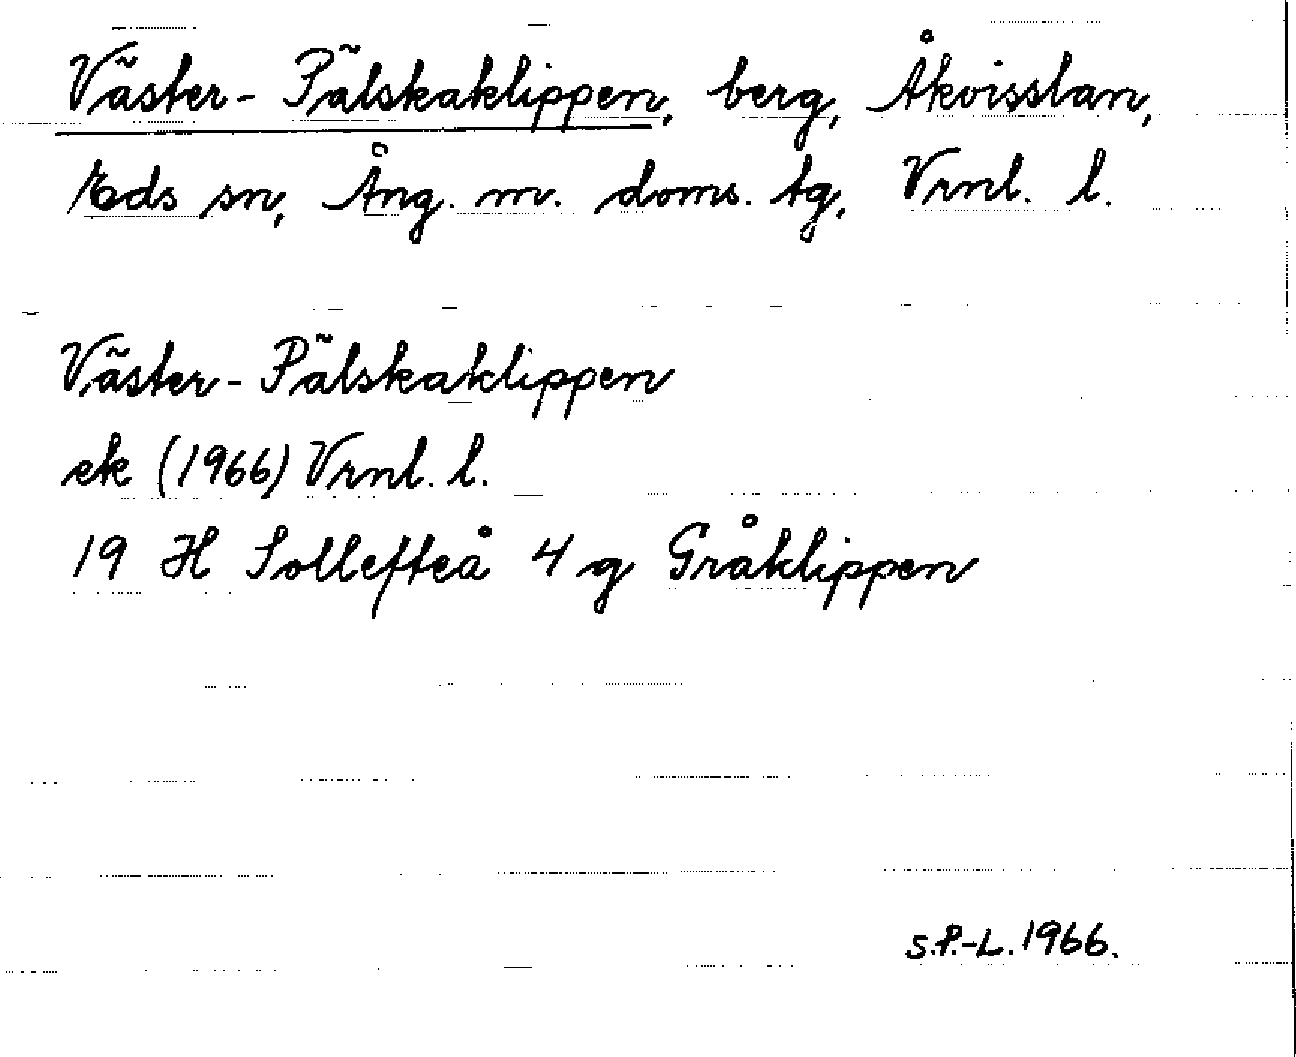 Väster-Pälskaklippen, berg, Åkvisslan,
Eds sn, Ång. m. doms. tg, Vrnl. l.
Väster-Pälskaklippen
ek (1966) Vrnl. l.
19 H Sollefteå 4 g Gråklippen
S.P.-L. 1966.